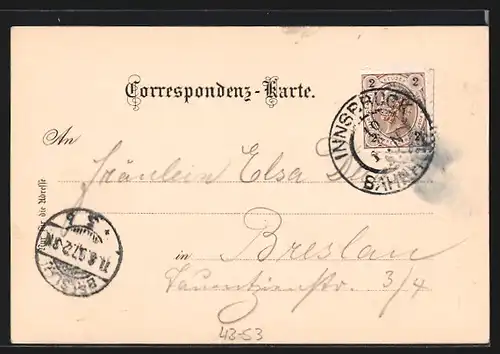 Correspondenz-Karte.
2 2
INNSBRUCK
BAHNHOF
An
Fräulein Elsa
Nur für die Adresse
in Breslau
Tauentzienstr. 3/4
BRESLAU
11.8.97.
43-53